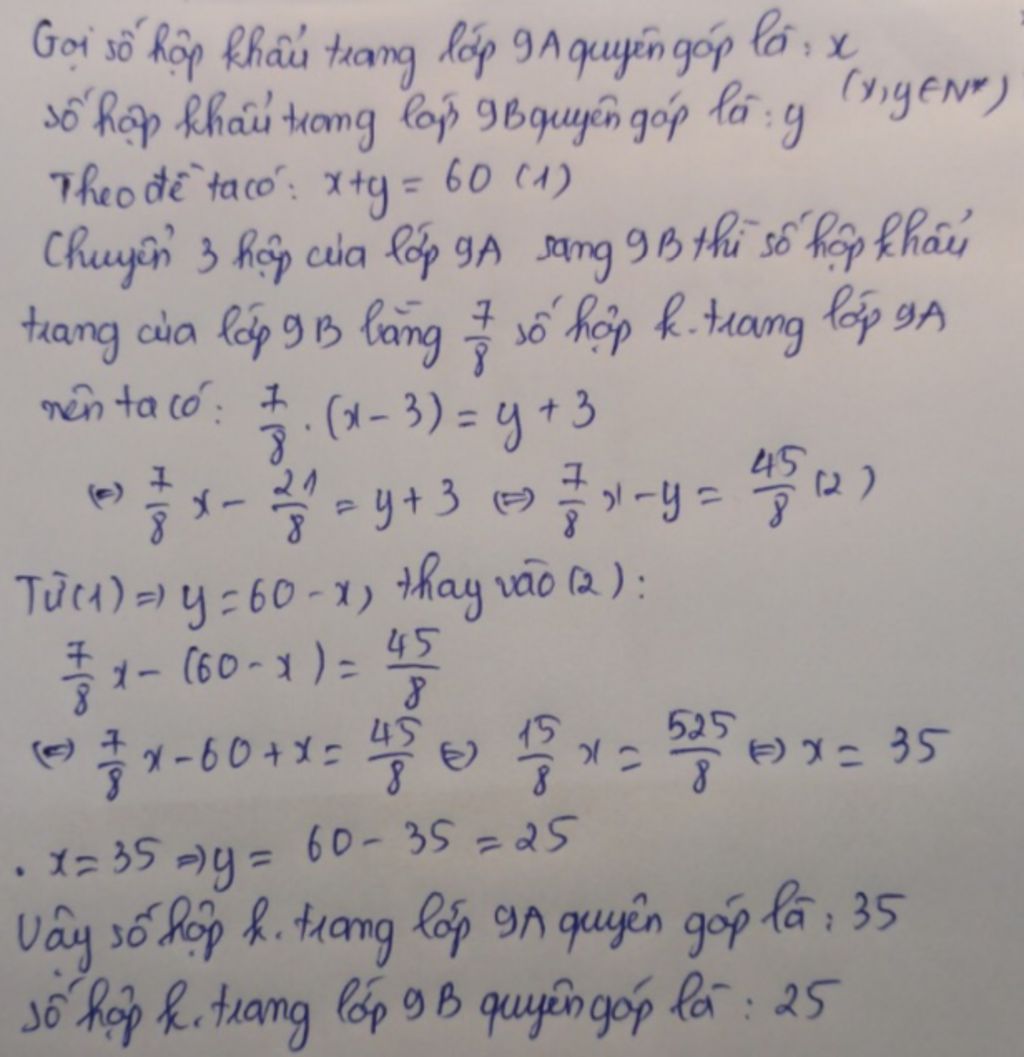 Gọi số hộp khẩu trang lớp 9A quyên góp là: x
số hộp khẩu trang lớp 9B quyên góp là: y (x,y ∈ N*)
Theo đề ta có: x+y = 60 (1)
Chuyển 3 hộp của lớp 9A sang 9B thì số hộp khẩu
trang của lớp 9B bằng 7/8 số hộp k.trang lớp 9A
nên ta có: 7/8 . (x - 3) = y + 3
⇔ 7/8 x - 21/8 = y + 3 ⇔ 7/8 x - y = 45/8 (2)
Từ (1) ⇒ y = 60 - x, thay vào (2):
7/8 x - (60 - x) = 45/8
⇔ 7/8 x - 60 + x = 45/8 ⇔ 15/8 x = 525/8 ⇔ x = 35
. x = 35 ⇒ y = 60 - 35 = 25
Vậy số hộp k.trang lớp 9A quyên góp là: 35
số hộp k.trang lớp 9B quyên góp là: 25